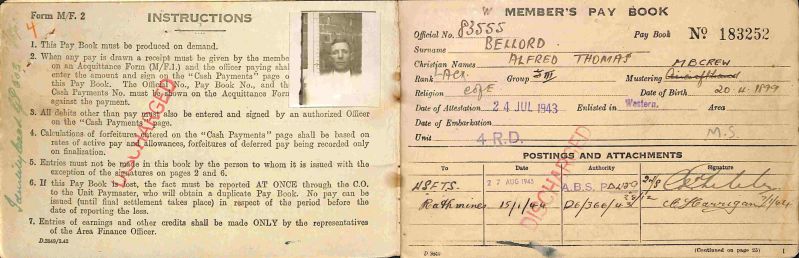 Form M/F. 2
INSTRUCTIONS
4
1. This Pay Book must be produced on demand.
2. When any pay is drawn a receipt must be given by the member
on an Acquittance Form (M/F.1) and the officer paying shall
enter the amount and sign on the "Cash Payments" page o
this Pay Book. The Official No., Pay Book No., and the
Cash Payments No. must be shown on the Acquittance Form
against the payment.
3. All debits other than pay must also be entered and signed by an authorized Officer
on the "Cash Payments" page.
4. Calculations of forfeitures entered on the "Cash Payments" page shall be based on
rates of active pay and allowances, forfeitures of deferred pay being recorded only
on finalization.
5. Entries must not be made in this book by the person to whom it is issued with the
exception of the signatures on pages 2 and 6.
6. If this Pay Book is lost, the fact must be reported AT ONCE through the C.O.
to the Unit Paymaster, who will obtain a duplicate Pay Book. No pay can be
issued (until final settlement takes place) in respect of the period before the
date of reporting the loss.
7. Entries of earnings and other credits shall be made ONLY by the representatives
of the Area Finance Officer.
D.3849/3.42
DISCHARGED
W MEMBER'S PAY BOOK
Official No. 83555 Pay Book No 183252
Surname BELLORD
Christian Names ALFRED THOMAS
Rank ACI Group III Mustering MBCREW
Religion C of E Date of Birth 20.4.1899
Date of Attestation 24 JUL 1943 Enlisted in Western. Area
Date of Embarkation
Unit 4 R.D. M.S.
POSTINGS AND ATTACHMENTS
To Date Authority Signature
HSFTS. 27 AUG 1943 A.B.S. 27/8
Rathmines 15/1/44 D6/366/43
DISCHARGED
D 3849 (Continued on page 25) 1